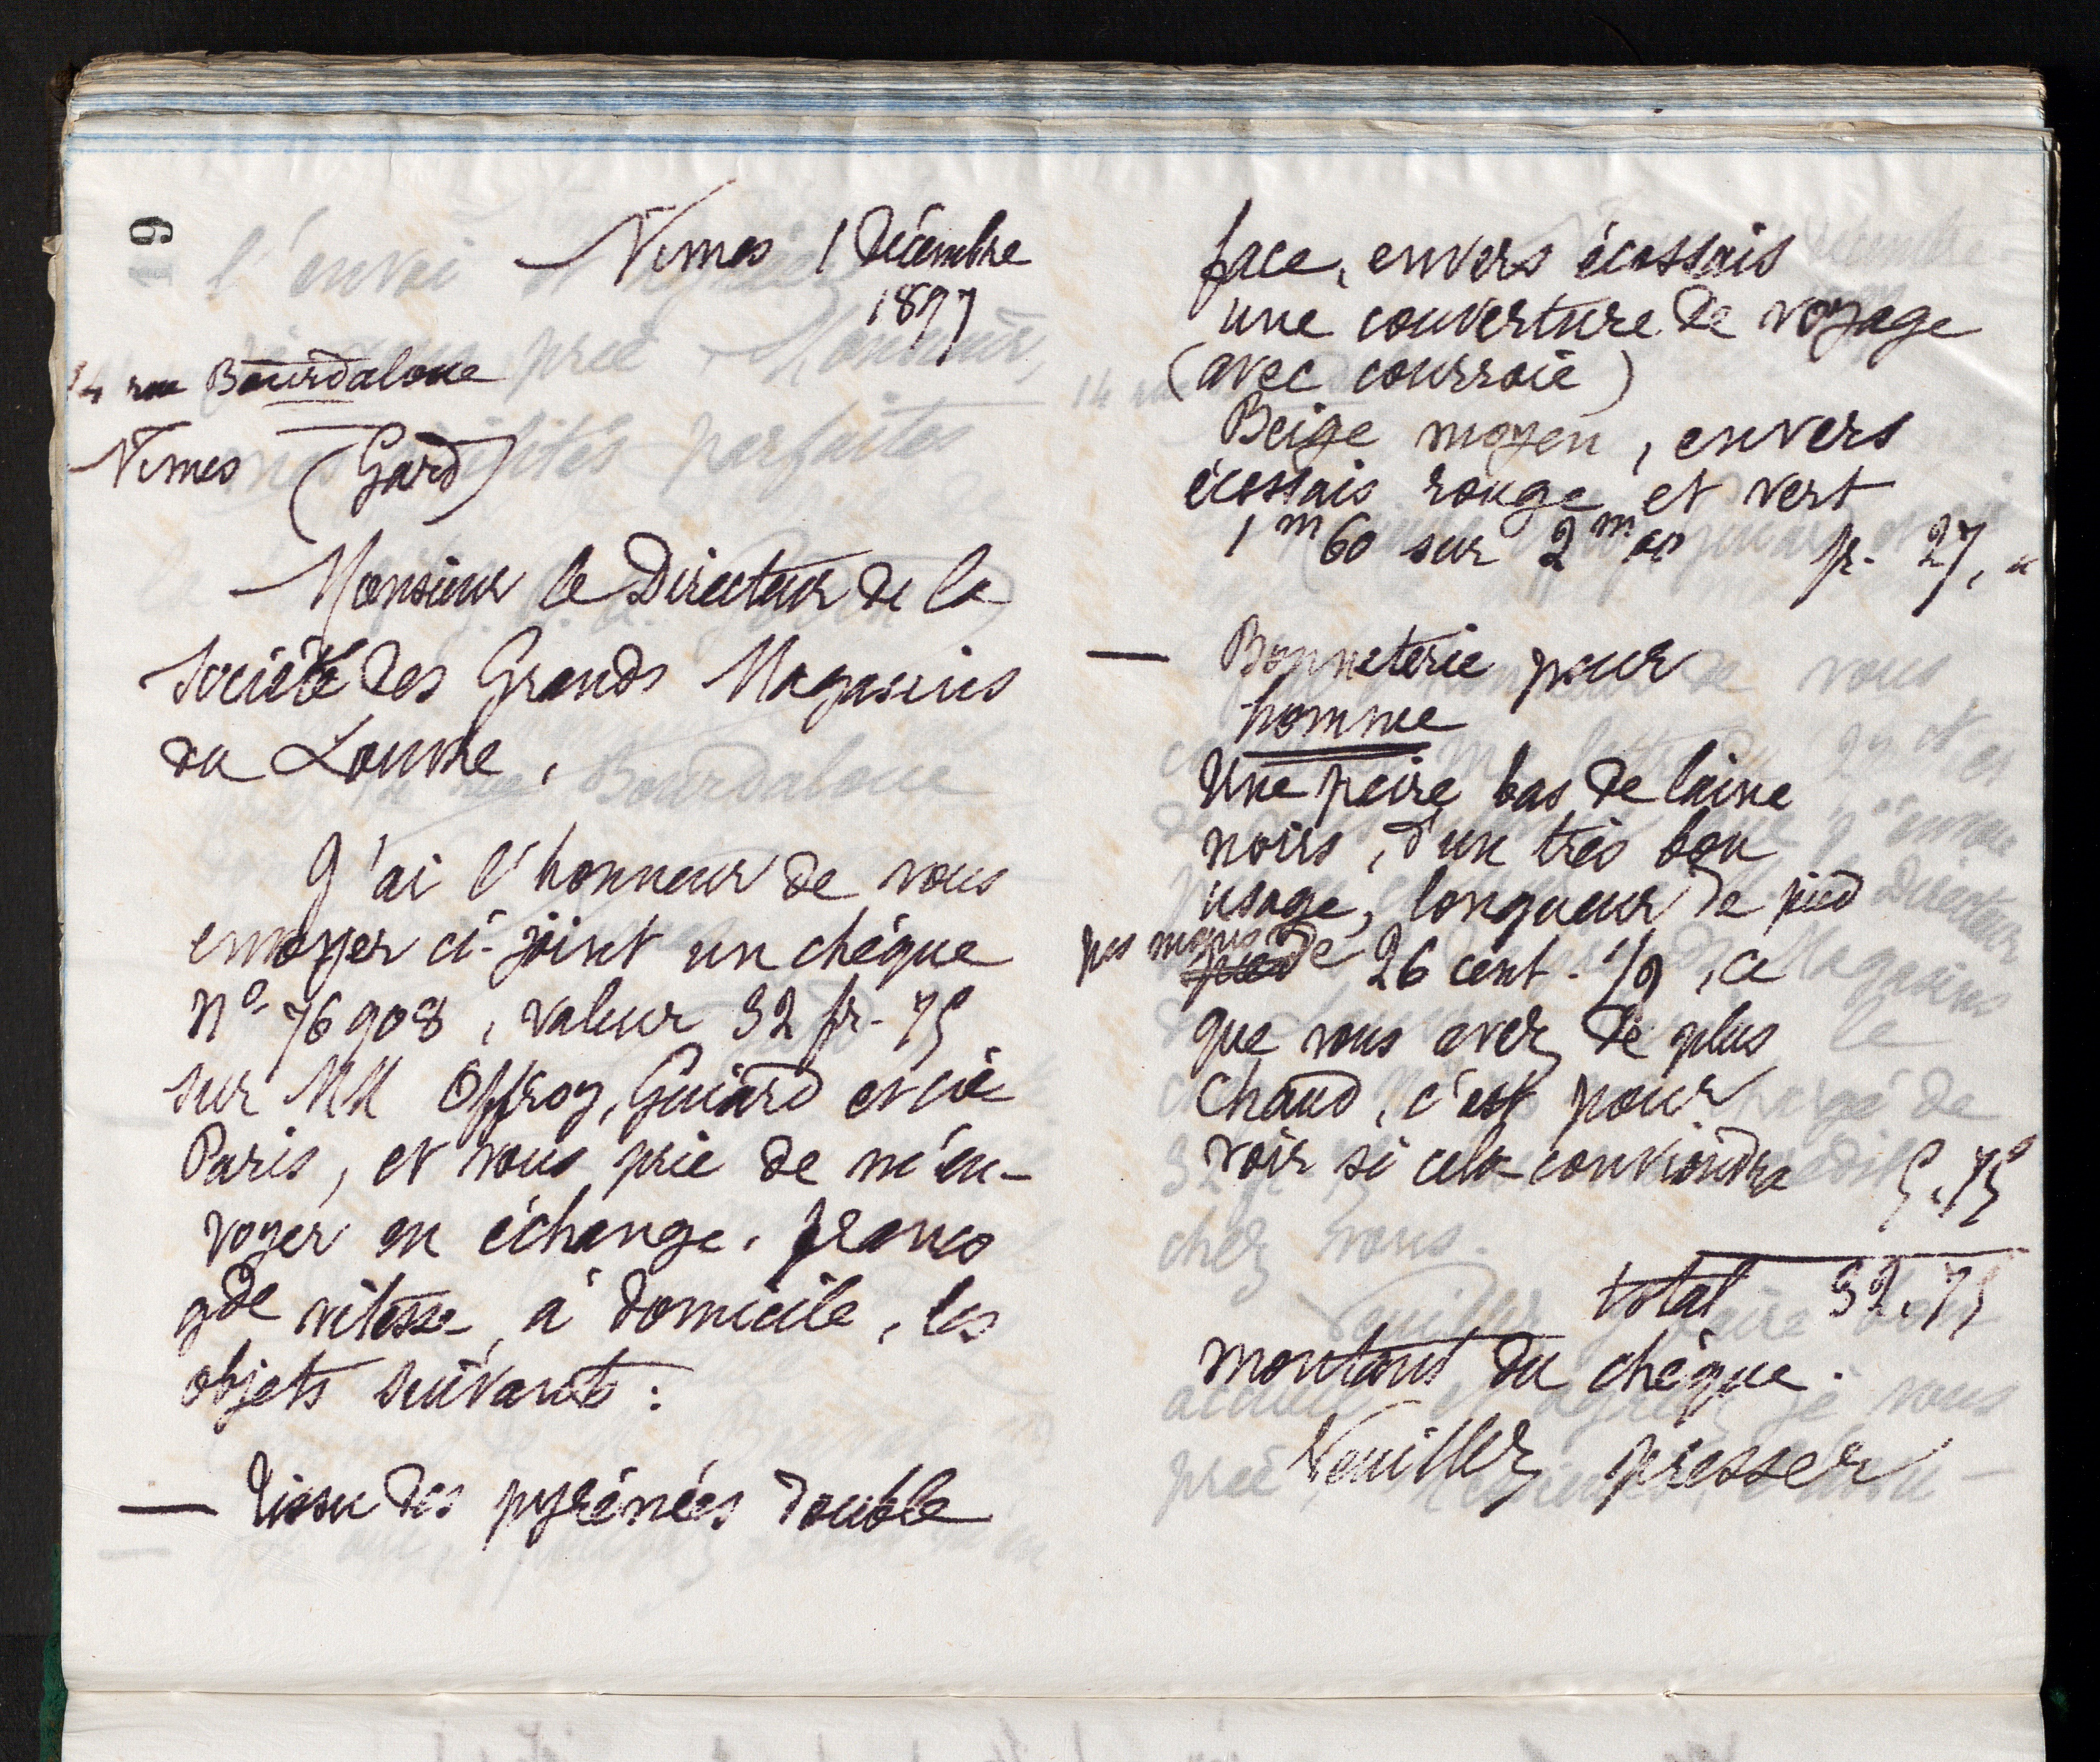 19
Nîmes 1 Décembre
1897
14 rue Bourdaloue
Nîmes (Gard)
Monsieur le Directeur de la
Société des Grands Magasins
du Louvre,
J'ai l'honneur de vous
envoyer ci-joint un chéque
n° 76908, valeur 32 fr. 75
sur MM Offroy, Guiard et Cie
Paris, et vous prie de m'en-
voyer en échange, franco
gde vitesse, à domicile, les
objets suivants :
— Tissu des pyrénées double
face, envers écossais
une couverture de voyage
(avec courroie)
Beige moyen, envers
écossais rouge et vert
1m60 sur 2m00 fr. 27, "
— Bonneterie pour
homme
Une paire bas de laine
noirs, d'un très bon
usage, longueur de pied
pas moins de 26 cent. 1/2, ce
que vous avez de plus
chaud, c'est pour
voir si cela conviendra 5.75
total 32.75
montant du chéque.
Veuillez presser